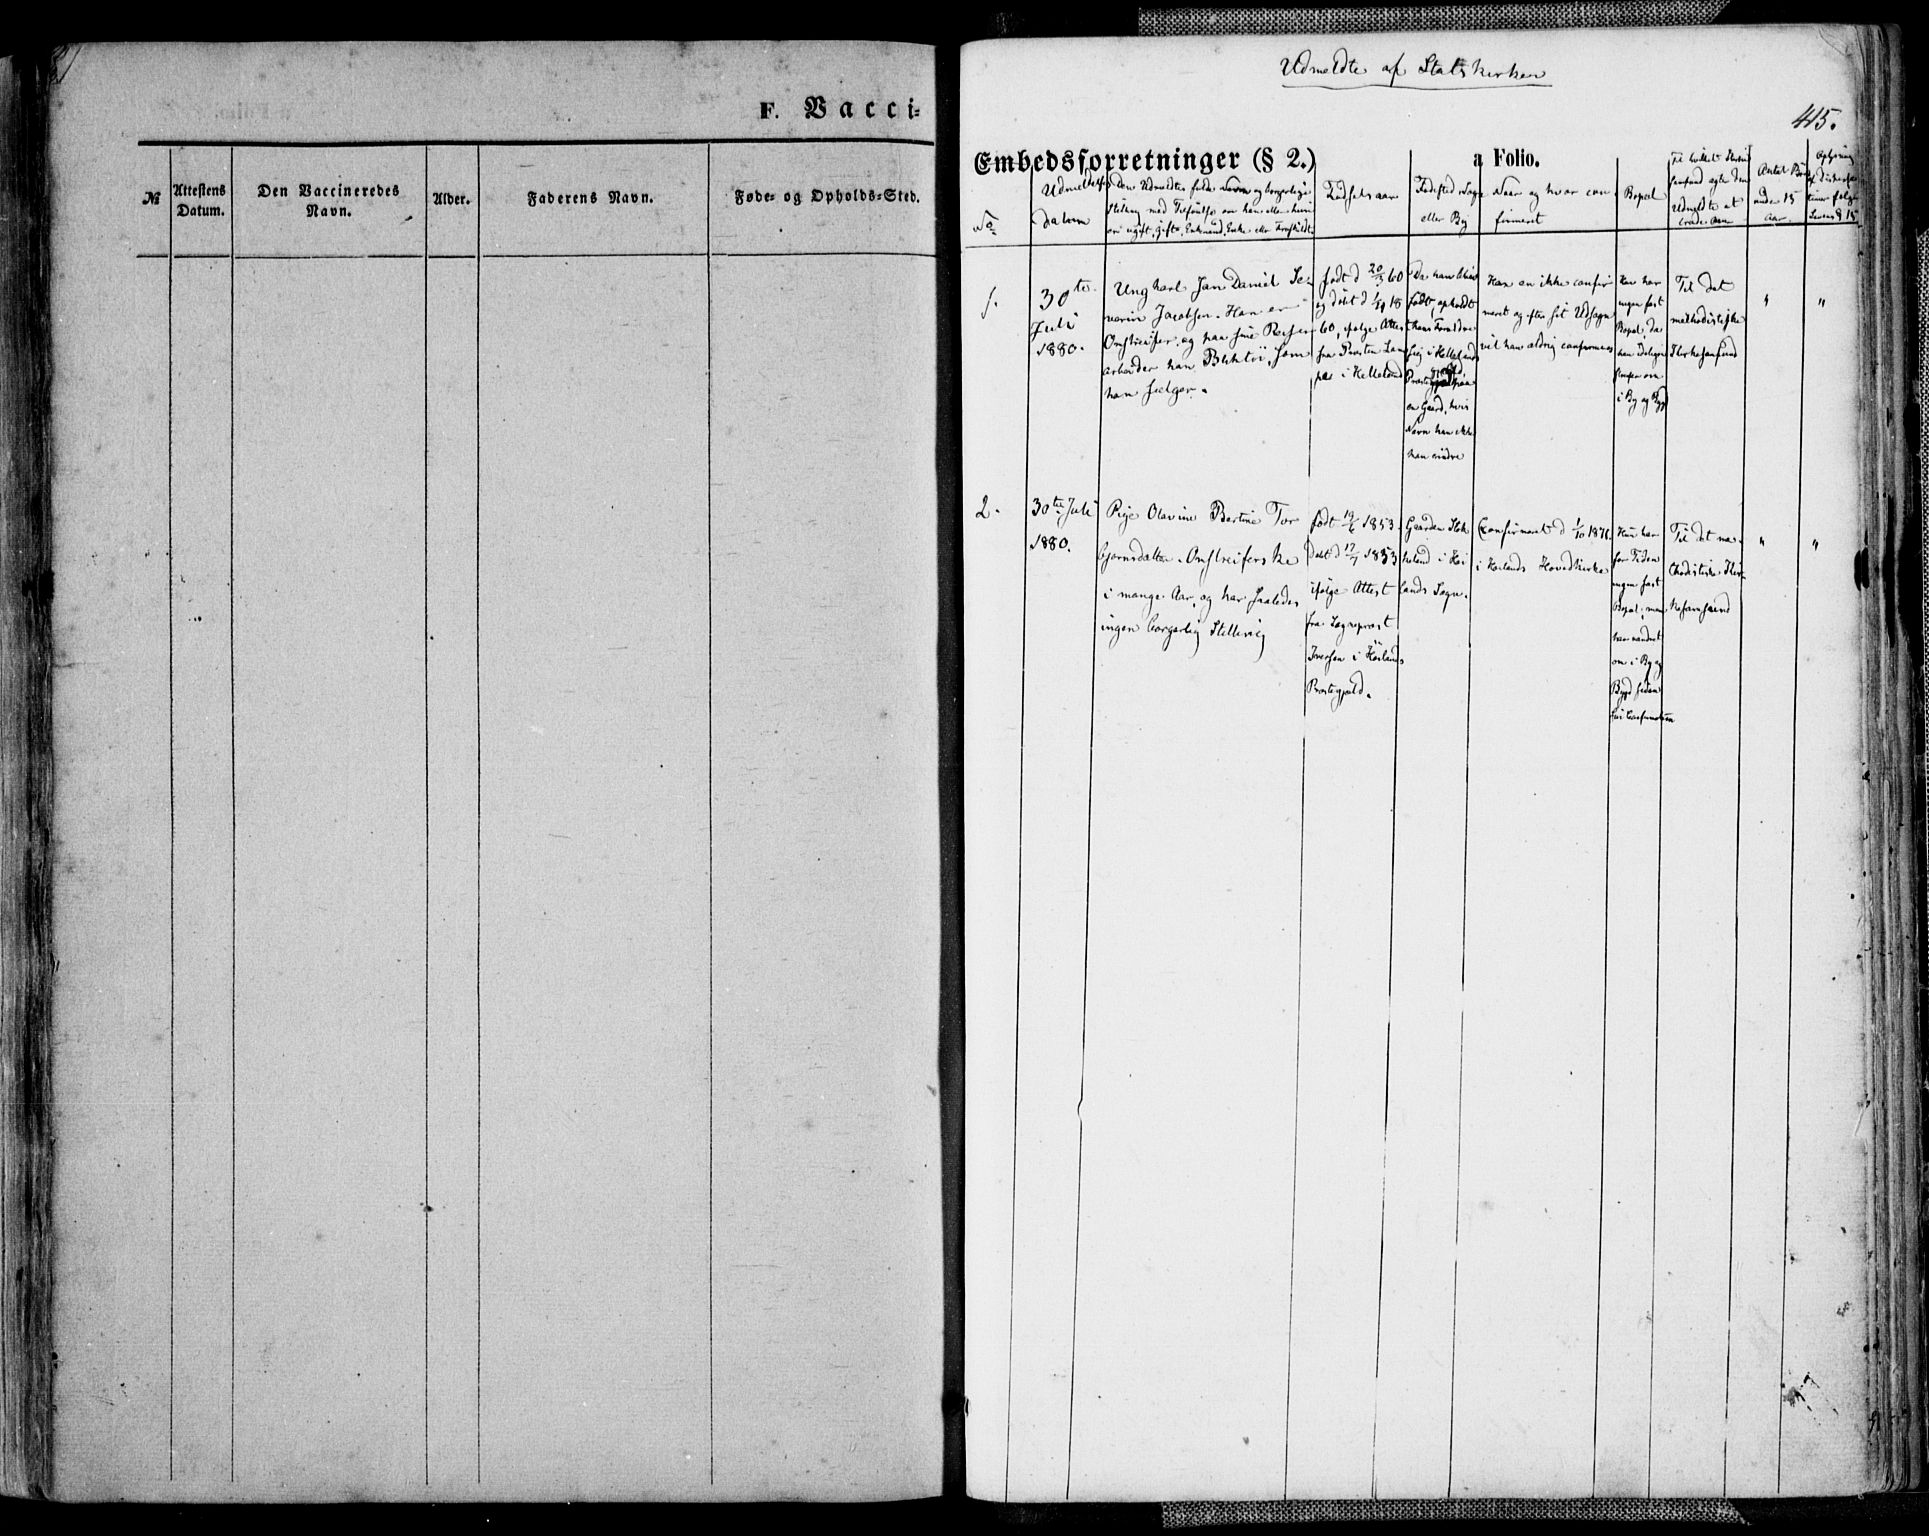 F. Vacci-
№
Attestens Datum.
Den Vaccineredes Navn.
Alder.
Faderens Navn.
Føde- og Opholds-Sted.
Udmeldte af Statskirken
415.
Embedsforretninger (§ 2.)
a Folio.
No
Udmeldelses
datum
Den Udmeldtes fulde Navn og borgerlige
Stilling med Tilføielse om han eller hun
er ugift, gift, Enkemand, Enke eller Fraskildt
Fødselsaar
Fødested Sogn
eller By
Naar og hvor con
firmeret
Bopæl
Til hvilket Kirke
samfund agter den
Udmeldte at
træde over
Antal Børn
under 15
Aar
1.
30te
Juli
1880.
Ungkarl Jan Daniel Se-
verin Jacobsen. Han er
Omstreifer, og paa sine Reiser
arbeider han Bliktøi, som
han sælger.
født d 20/3 60
og døbt d 1/4 18
60, ifølge Attest
fra Provsten Lam
pe i Helleland
Da han blev
født, opholdt
hans Forældre
sig i Hellelands
Præstegjæld paa
en Gaard, hvis
Navn han ikke
kan erindre
Han er ikke confir
meret og efter sit Udsagn
vil han aldrig confirmeres
Han har
ingen fast
Bopæl, da
han
reiser om
i By og Bygd
Til det
methodistiske
Kirkesamfund
"
"
2.
30te Juli
1880.
Pige Olavine Bertine Tor
bjørnsdatter. Omstreiferske
i mange Aar, og har saaledes
ingen borgerlig Stilling
født 19/6 1853.
døbt d 17/7 1853
ifølge Attest
fra Sogneprest
Iversen i Høilands
Præstegjæld.
Gaarden
i Høi
lands Sogn.
Confirmeret d 1/10 1871.
i Høilands Hovedkirke
Hun har
for Tiden
ingen fast
Bopæl, men
har vandret
om i By og
Bygd siden
sin Confirmation
Til det me-
thodistiske Kir-
kesamfund
"
"